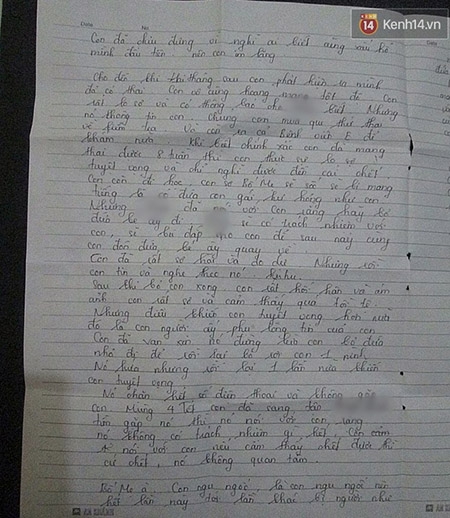 14 Kenh14.vn
Con đã chịu đựng vì nghĩ ai biết cũng xấu hổ
mình đầu tiên nên con im lặng
Cho đến khi thi tháng sau con phát hiện ra mình
đã có thai Con vô cùng hoang mang tột độ Con
rất lo sợ và có thông báo cho biết Nhưng
nó không tin con. Chúng con mua que thử thai
về kiểm tra Và còn ra cả bệnh viện E để
khám nữa khi biết chính xác con đã mang
thai được 8 tuần thì con thực sự lo sợ
tuyệt vọng và chỉ nghĩ được đến cái chết
Con còn đi học, con sợ Bố Mẹ sẽ sốc sẽ bị mang
tiếng là có đứa con gái hư hỏng như con
Nhưng đã nói với con rằng hãy bỏ
đứa bé ấy đi sẽ có trách nhiệm với
con, sẽ bù đắp cho con để sau này cùng
con đón đứa bé ấy quay về
Con đã rất sợ hãi và do dự Nhưng rồi
con tin và nghe theo nó
Sau khi bỏ con xong con rất hối hận và ám
ảnh con rất sợ và cảm thấy quá tồi tệ.
Nhưng điều khiến con tuyệt vọng hơn nữa
đó là con người ấy phụ lòng tin của con
Con đã van xin nó đừng bắt con bỏ đứa
nhỏ đi để rồi lại bỏ rơi con 1 mình
Nó hứa nhưng rồi lại 1 lần nữa khiến
con tuyệt vọng
Nó chặn hết số điện thoại và không gặp
con Mùng 4 Tết con đã sang
tìm gặp nó thì nó nói với con rằng
nó không có trách nhiệm gì hết Còn
nói với con nếu cảm thấy chết được thì
cứ chết, nó không quan tâm.
Bố Mẹ à Con ngu ngốc, là con ngu ngốc nên
hết lần này tới lần khác bị người như